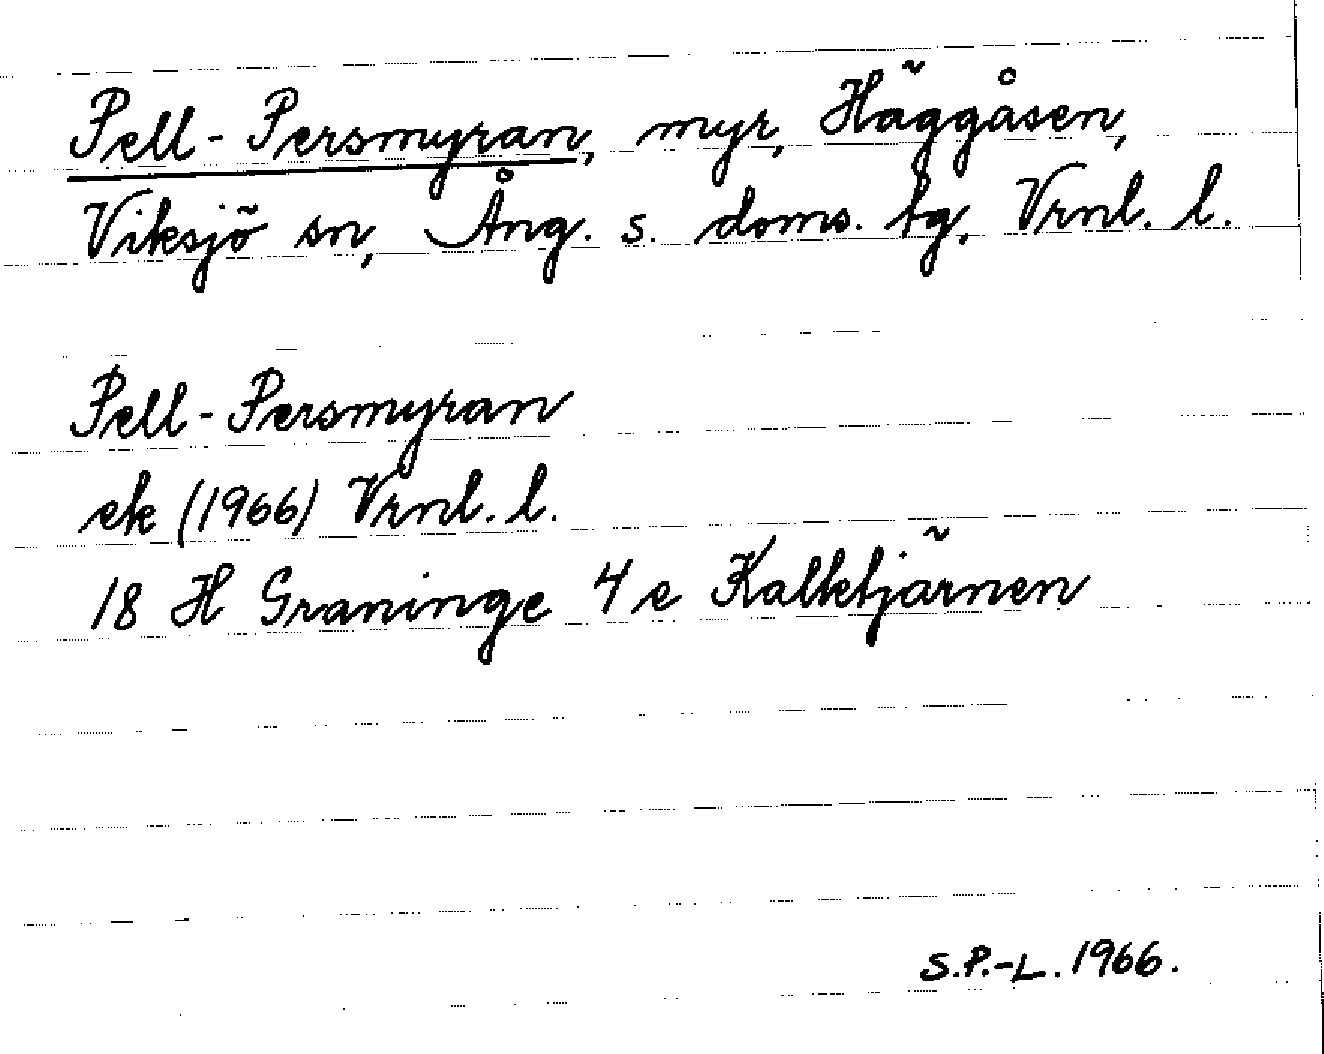 Pell-Persmyran, myr, Häggåsen,
Viksjö sn, Ång. s. doms. tg, Vrnl. l.
Pell-Persmyran
ek (1966) Vrnl. l.
18 H Graninge 4 e Kalktjärnen
S.P.-L. 1966.